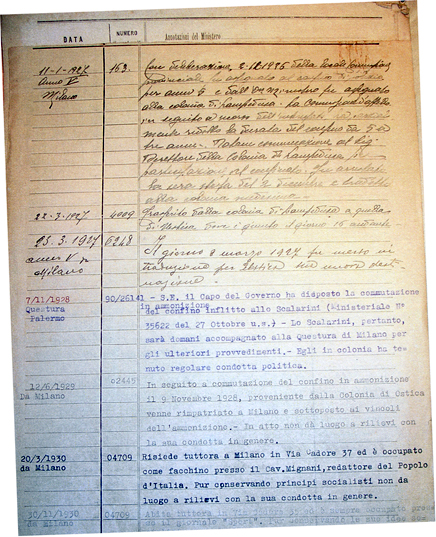 DATA NUMERO Annotazioni del Ministero
11-1-1927 163. con deliberazione 2-12-1926 della locale Commiss.
Anno V provinciale fu assegnato al confino di
Milano per anni 5 e dall' On. Ministero fu assegnato
alla colonia di Lampedusa. La Commissione d'appello
in seguito a ricorso dell'
mente ridotto la durata del confino da 5 a
tre anni.
Direttore della Colonia di Lampedusa
la sera stessa del 2 dicembre e tradotto
alla colonia
22-3-1927 4009 Trasferito dalla colonia di Lampedusa a quella
di Ustica dove è giunto il giorno 15 andante.
23.3.1927 6248 Il giorno 8 marzo 1927 fu messo in
anno V traduzione per Ustica sua nuova desti-
Milano nazione.
7/11/1928 90/26141 - S.E. il Capo del Governo ha disposto la commutazione
in ammonizione
Questura del confino inflitto allo Scalarini (Ministeriale N°
Palermo 35622 del 27 Ottobre u.s.) - Lo Scalarini, pertanto,
sarà domani accompagnato alla Questura di Milano per
gli ulteriori provvedimenti.- Egli in colonia ha te-
nuto regolare condotta politica.
12/6/1929 02445 In seguito a commutazione del confino in ammonizione
Da Milano il 9 Novembre 1928, proveniente dalla Colonia di Ustica
venne rimpatriato a Milano e sottoposto ai vincoli
dell'ammonizione.- In atto non dà luogo a rilievi con
la sua condotta in genere.
20/3/1930 04709 Risiede tuttora a Milano in Via Cadore 37 ed è occupato
da Milano come facchino presso il Cav.Mignani, redattore del Popolo
d'Italia. Pur conservando principi socialisti non da
luogo a rilievi con la sua condotta in genere.
30/11/1930 04709 tuttora
da Milano il giornale